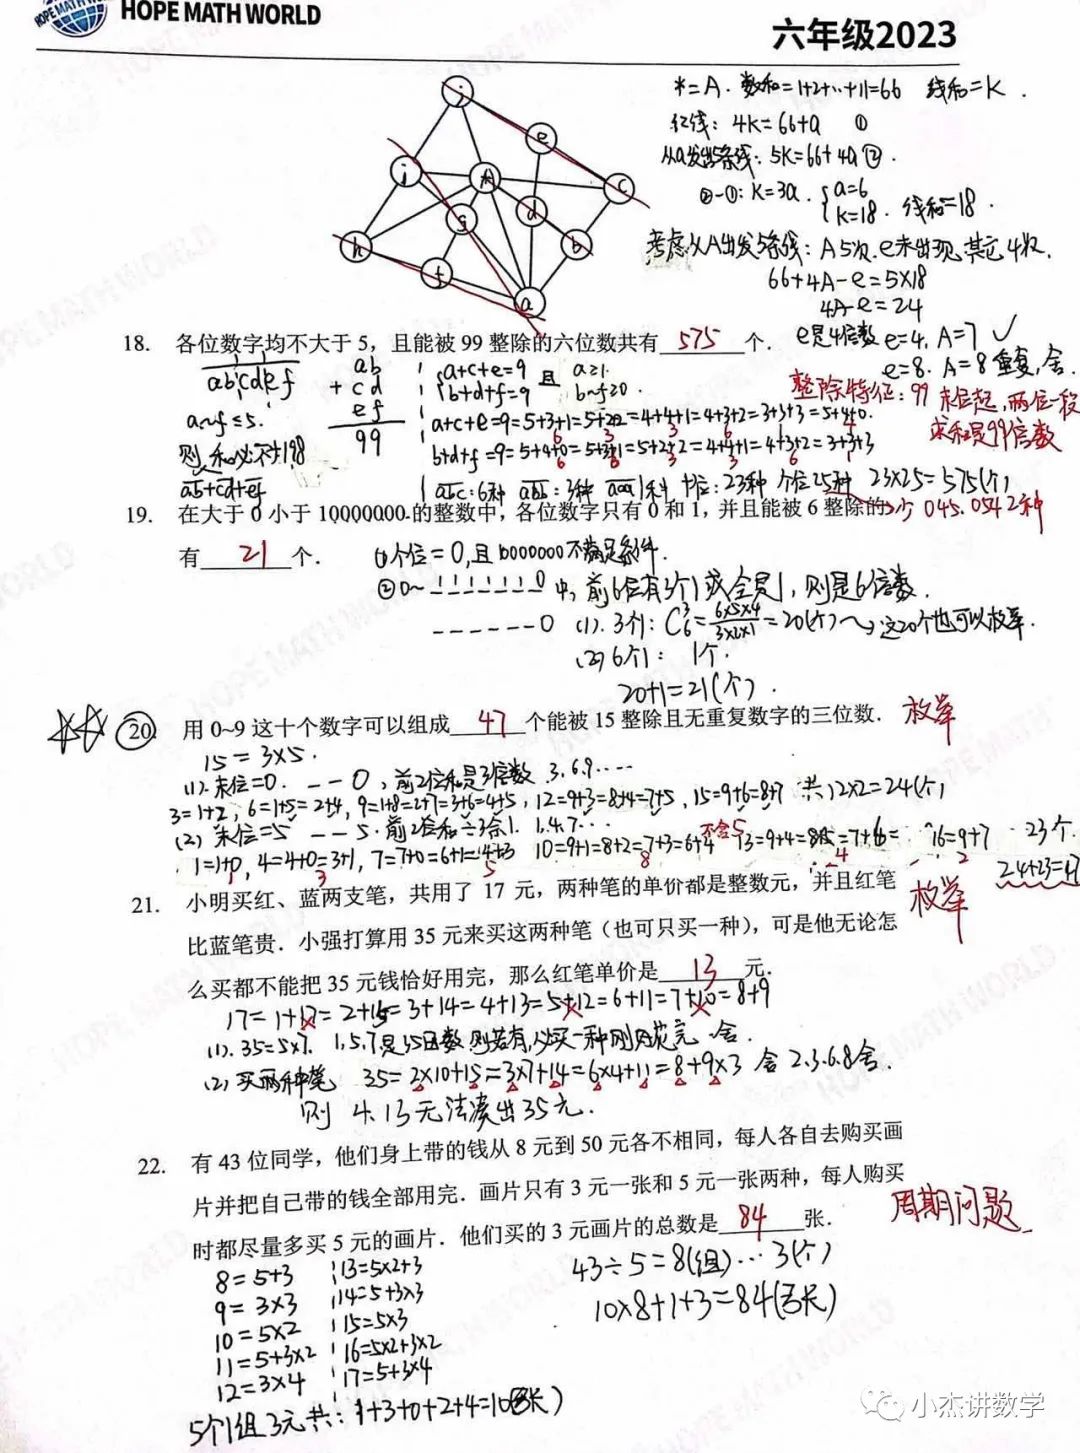 HOPE MATH WORLD
六年级2023
*=A. 数和=1+2+…+11=66 线和=K.
红线: 4K=66+a ①
从a发出5条线: 5K=66+4a ②.
②-①: K=3a. {a=6 K=18. 线和=18.
考虑从A出发5条线: A 5次. e未出现, 其它4次.
66+4A-e=5×18
4A-e=24
e是4倍数 e=4, A=7 ✓
e=8. A=8 重复, 舍.
j
e
i
*
c
g
d
h
b
f
a
18. 各位数字均不大于 5，且能被 99 整除的六位数共有 575 个．
整除特征: 99 末位起, 两位一段
求和是99倍数
abcdef
ab
+ cd
ef
99
a~f≤5.
则 和必不是198
ab+cd+ef
{a+c+e=9 b+d+f=9 且 a≥1. b~f≥0.
a+c+e=9=5+3+1=5+2+2=4+4+1=4+3+2=3+3+3=5+4+0.
6 3 3 6 1
b+d+f=9=5+4+0=5+3+1=5+2+2=4+4+1=4+3+2=3+3+3
6 6 3 3 6 1
abc:6种 abb:3种 aaa 1种 十位:23种 个位25种 23×25=575(个)
少 045. 054 2种
19. 在大于 0 小于 10000000 的整数中，各位数字只有 0 和 1，并且能被 6 整除的
有 21 个．
①个位=0, 且10000000不满足条件.
②0~1111110 中, 前6位有3个1或全是1, 则是6倍数.
------0 (1). 3个1: C₆³=6×5×4/3×2×1=20(个) 这20个也可以枚举.
(2) 6个1: 1个.
20+1=21(个).
20. 用 0~9 这十个数字可以组成 47 个能被 15 整除且无重复数字的三位数． 枚举
15=3×5.
(1). 末位=0. --0, 前2位和是3倍数. 3.6.9.…
3=1+2, 6=1+5=2+4, 9=1+8=2+7=3+6=4+5, 12=9+3=8+4=7+5, 15=9+6=8+7 共12×2=24(个)
(2) 末位=5 --5. 前2位和÷3余1. 1.4.7.…
不含5
1=1+0, 4=4+0=3+1, 7=7+0=6+1=4+3 10=9+1=8+2=7+3=6+4 13=9+4=8+5=7+6= 16=9+7 23个.
3 5 8 4 2
24+23=47
21. 小明买红、蓝两支笔，共用了 17 元，两种笔的单价都是整数元，并且红笔
枚举
比蓝笔贵．小强打算用 35 元来买这两种笔（也可只买一种），可是他无论怎
么买都不能把 35 元钱恰好用完，那么红笔单价是 13 元．
17=1+17=2+15=3+14=4+13=5+12=6+11=7+10=8+9
(1). 35=5×7. 1,5,7是35因数, 则若有, 必买一种刚用花完. 舍.
(2). 买两种笔 35=2×10+15=3×7+14=6×4+11=8+9×3 舍 2.3.6.8舍.
则 4.13无法凑出35元.
22. 有 43 位同学，他们身上带的钱从 8 元到 50 元各不相同，每人各自去购买画
片并把自己带的钱全部用完．画片只有 3 元一张和 5 元一张两种，每人购买
时都尽量多买 5 元的画片．他们买的 3 元画片的总数是 84 张．
周期问题
8=5+3
9=3×3
10=5×2
11=5+3×2
12=3×4
13=5×2+3
14=5+3×3
15=5×3
16=5×2+3×2
17=5+3×4
43÷5=8(组)…3(个)
10×8+1+3=84(张)
5个1组 3元共: 1+3+0+2+4=10(张)
小杰讲数学